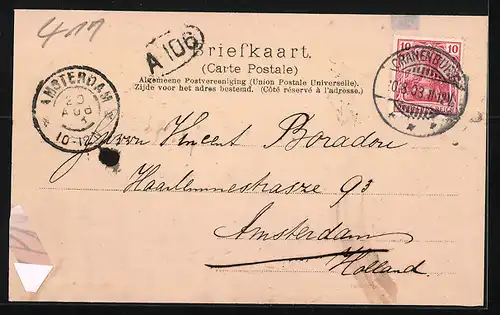 411
A 106
Briefkaart.
(Carte Postale)
Algemeene Postvereeniging (Union Postale Universelle).
Zijde voor het adres bestemd. (Côté réservé à l'adresse.)
10 10
CRANENBURG
AMSTERDAM
20
AUG
10-12
Herrn Vincent Boradori
Haarlemmestrasze 93
Amsterdam
Holland.